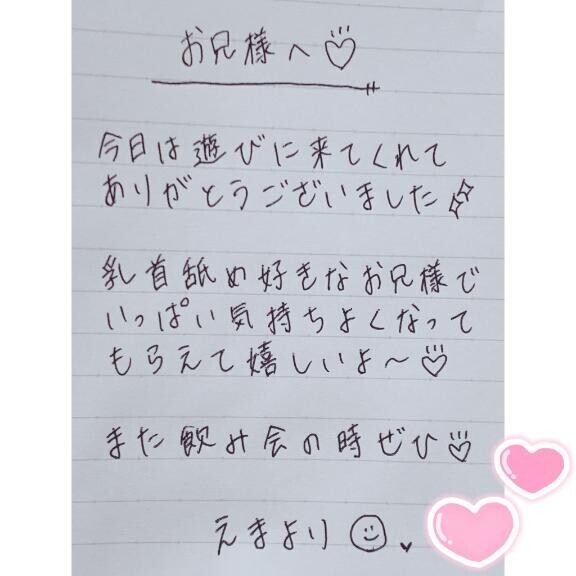 お兄様へ♡
今日は遊びに来てくれて
ありがとうございました
乳首舐め好きなお兄様で
いっぱい気持ちよくなって
もらえて嬉しいよ〜♡
また飲み会の時ぜひ♡
えまより